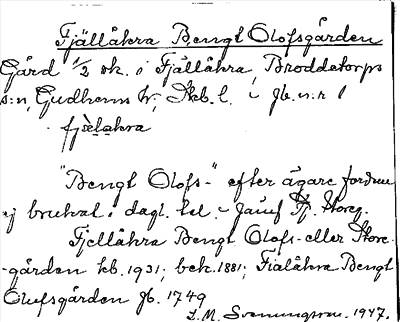 Fjällåkra Bengt Olofsgården
Gård 1/2 sk. i Fjällåkra, Broddetorps
s:n, Gudhems hd, Skb. l. i jb. n:r 1
fjèlạkra
"Bengt Olofs-" efter ägare fordom
ej brukat i dagl. tal. - Jämf Fj. Storeg.
Fjellåkra Bengt Olofs- eller Store-
-gården kb. 1931; bek. 1881; Fialåkra Bengt
Olufsgården jb. 1749
L. M. Svenungsson. 1947.